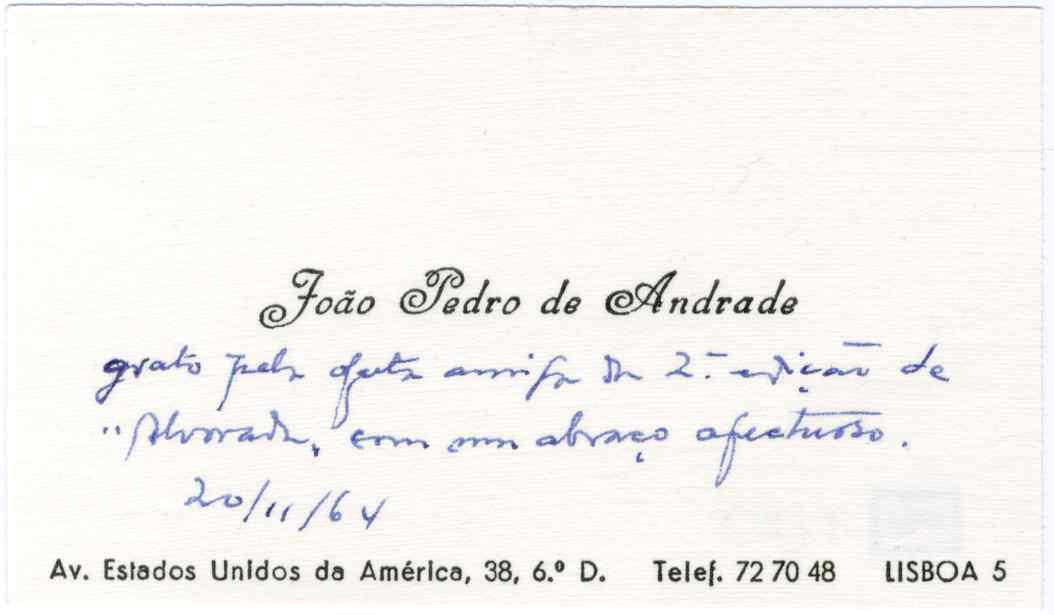 João Pedro de Andrade
grato pela oferta amiga da 2.ª edição de
"Alvorada", com um abraço afectuoso.
20/11/64
Av. Estados Unidos da América, 38, 6.º D. Telef. 72 70 48 LISBOA 5